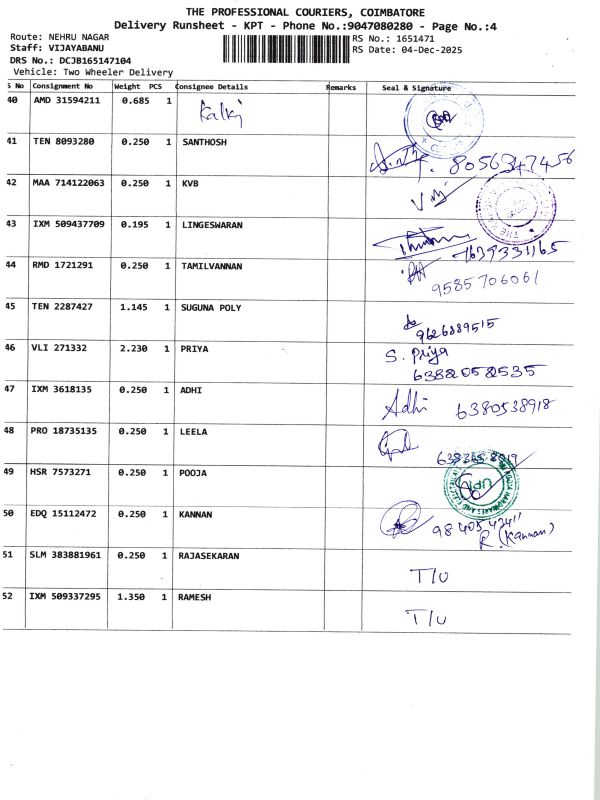 THE PROFESSIONAL COURIERS, COIMBATORE
Delivery Runsheet - KPT - Phone No.:9047080280 - Page No.:4
Route: NEHRU NAGAR
Staff: VIJAYABANU
DRS No.: DCJB165147104
Vehicle: Two Wheeler Delivery
RS No.: 1651471
RS Date: 04-Dec-2025
S No Consignment No Weight PCS Consignee Details Remarks Seal & Signature
40 AMD 31594211 0.685 1 Kalki
41 TEN 8093280 0.250 1 SANTHOSH 8056347456
42 MAA 714122063 0.250 1 KVB
43 IXM 509437709 0.195 1 LINGESWARAN 7639331165
44 RMD 1721291 0.250 1 TAMILVANNAN 9585706061
45 TEN 2287427 1.145 1 SUGUNA POLY 9626889515
46 VLI 271332 2.230 1 PRIYA S. Priya
6382058535
47 IXM 3618135 0.250 1 ADHI Adhi 6380538918
48 PRO 18735135 0.250 1 LEELA
49 HSR 7573271 0.250 1 POOJA
50 EDQ 15112472 0.250 1 KANNAN
R. (Kannan)
51 SLM 383881961 0.250 1 RAJASEKARAN T/U
52 IXM 509337295 1.350 1 RAMESH T/U